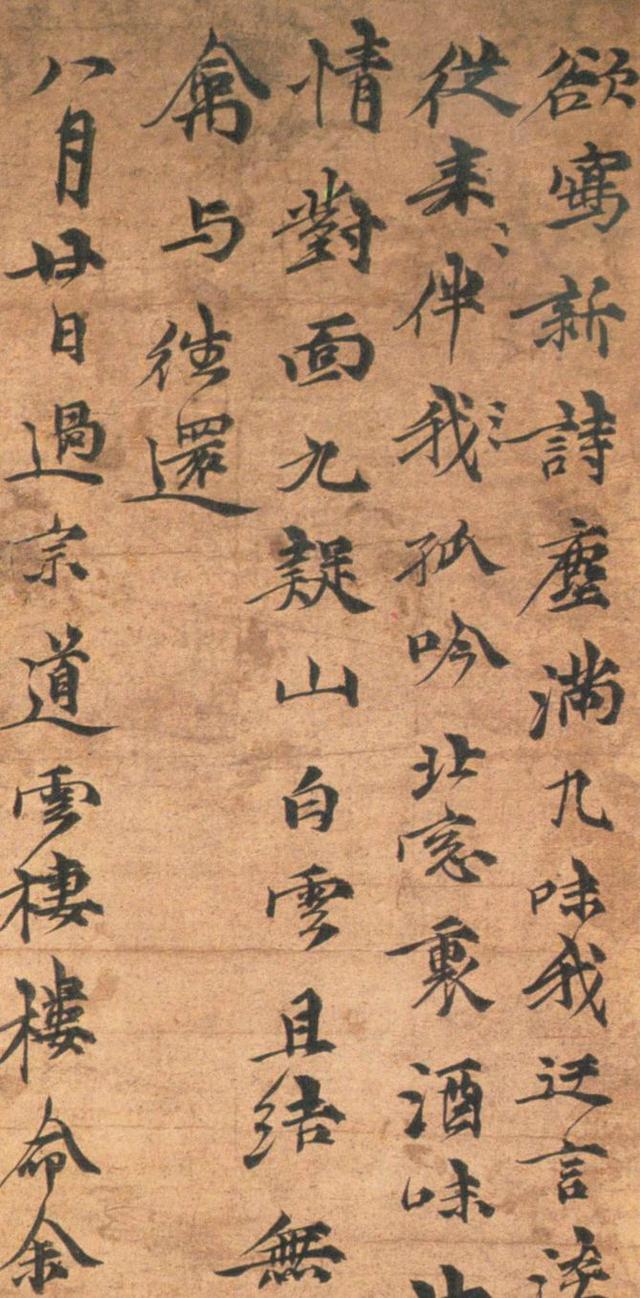 欲寫新詩塵滿几味我迂言
從来伴我孤吟北窓裏酒味
情對面九疑山白雲且結無
禽与往還
八月廿日過宗道雲棲樓命余